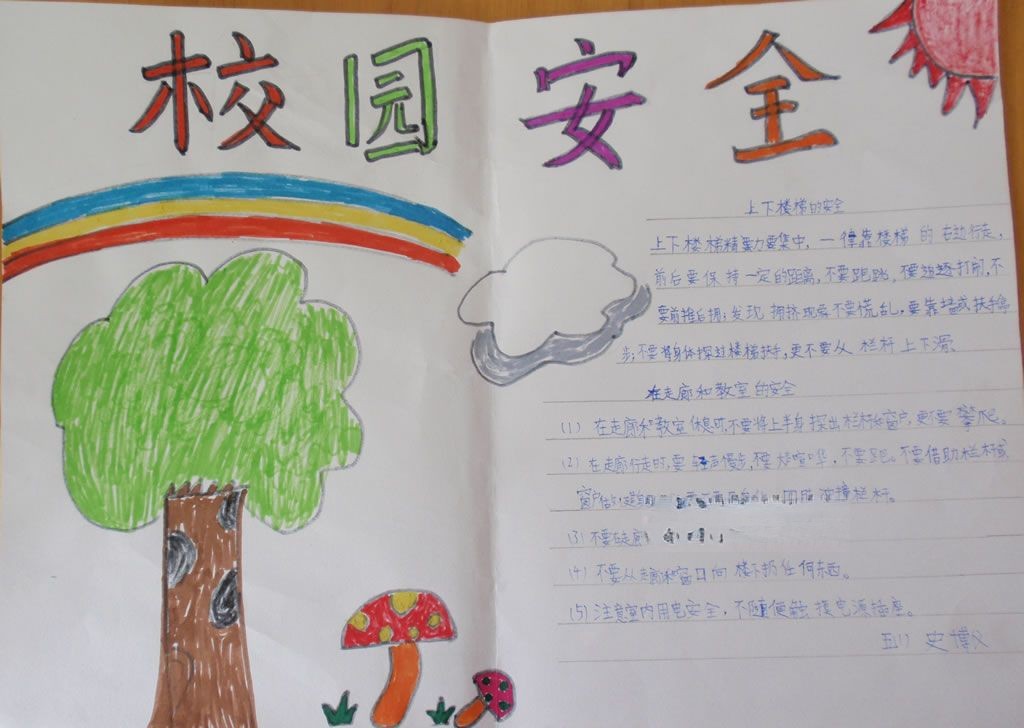 校园安全
上下楼梯的安全
上下楼梯精力要集中，一律靠楼梯的右边行走，
前后要保持一定的距离，不要跑跳，不要追逐打闹，不
要前推后拥；发现拥挤现象不要慌乱，要靠墙或扶手停
步；不要将身体探过楼梯扶手，更不要从栏杆上下滑。
在走廊和教室的安全
(1) 在走廊和教室休息时，不要将上半身探出栏杆和窗户，更不要攀爬。
(2) 在走廊行走时，要轻声慢步，不要大声喧哗，不要跑。不要借助栏杆或
窗户
撞栏杆。
(3) 不要在走廊
(4) 不要从走廊和窗口向楼下扔任何东西。
(5) 注意室内用电安全，不随便触摸电源插座。
五(1) 史博